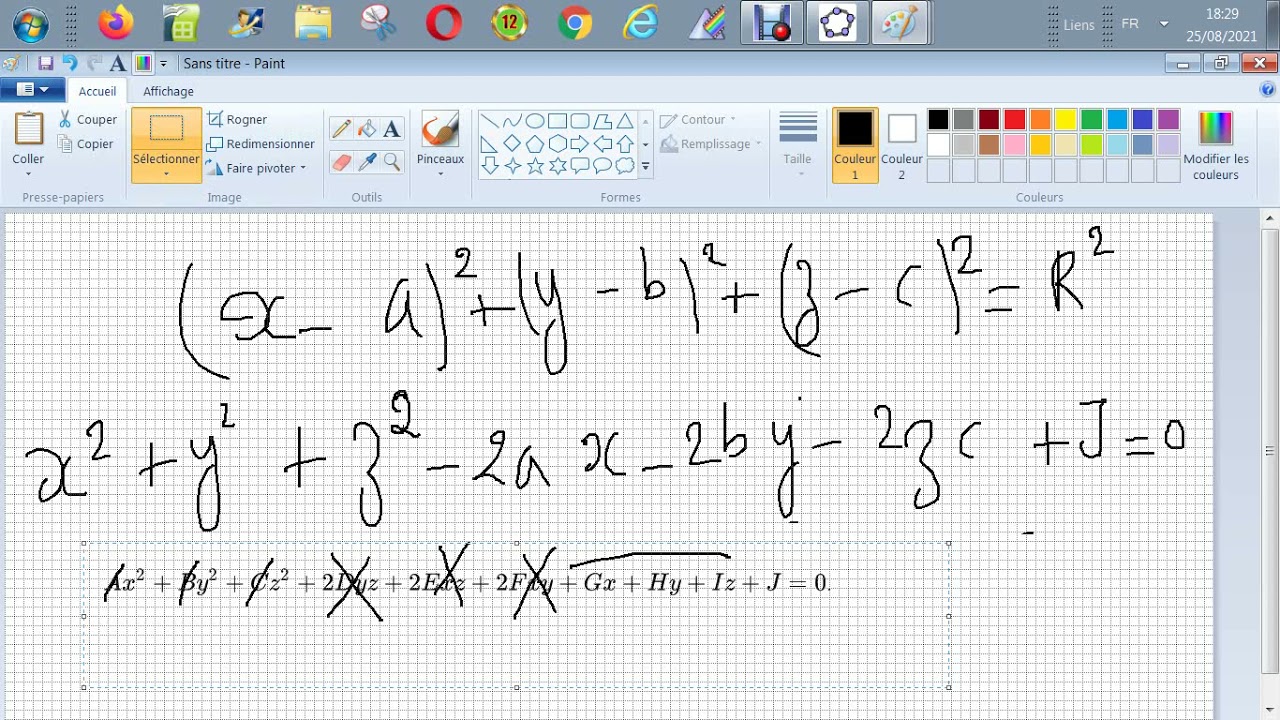 12
Liens
FR
18:29
25/08/2021
Sans titre - Paint
Accueil
Affichage
Coller
Couper
Copier
Presse-papiers
Sélectionner
Rogner
Redimensionner
Faire pivoter
Image
A
Outils
Pinceaux
Contour
Remplissage
Formes
Taille
Couleur 1
Couleur 2
Modifier les couleurs
Couleurs
(x - a)² + (y - b)² + (z - c)² = R²
x² + y² + z² - 2a x - 2b y - 2z c + J = 0
Ax² + By² + Cz² + 2Dyz + 2Exz + 2Fxy + Gx + Hy + Iz + J = 0.